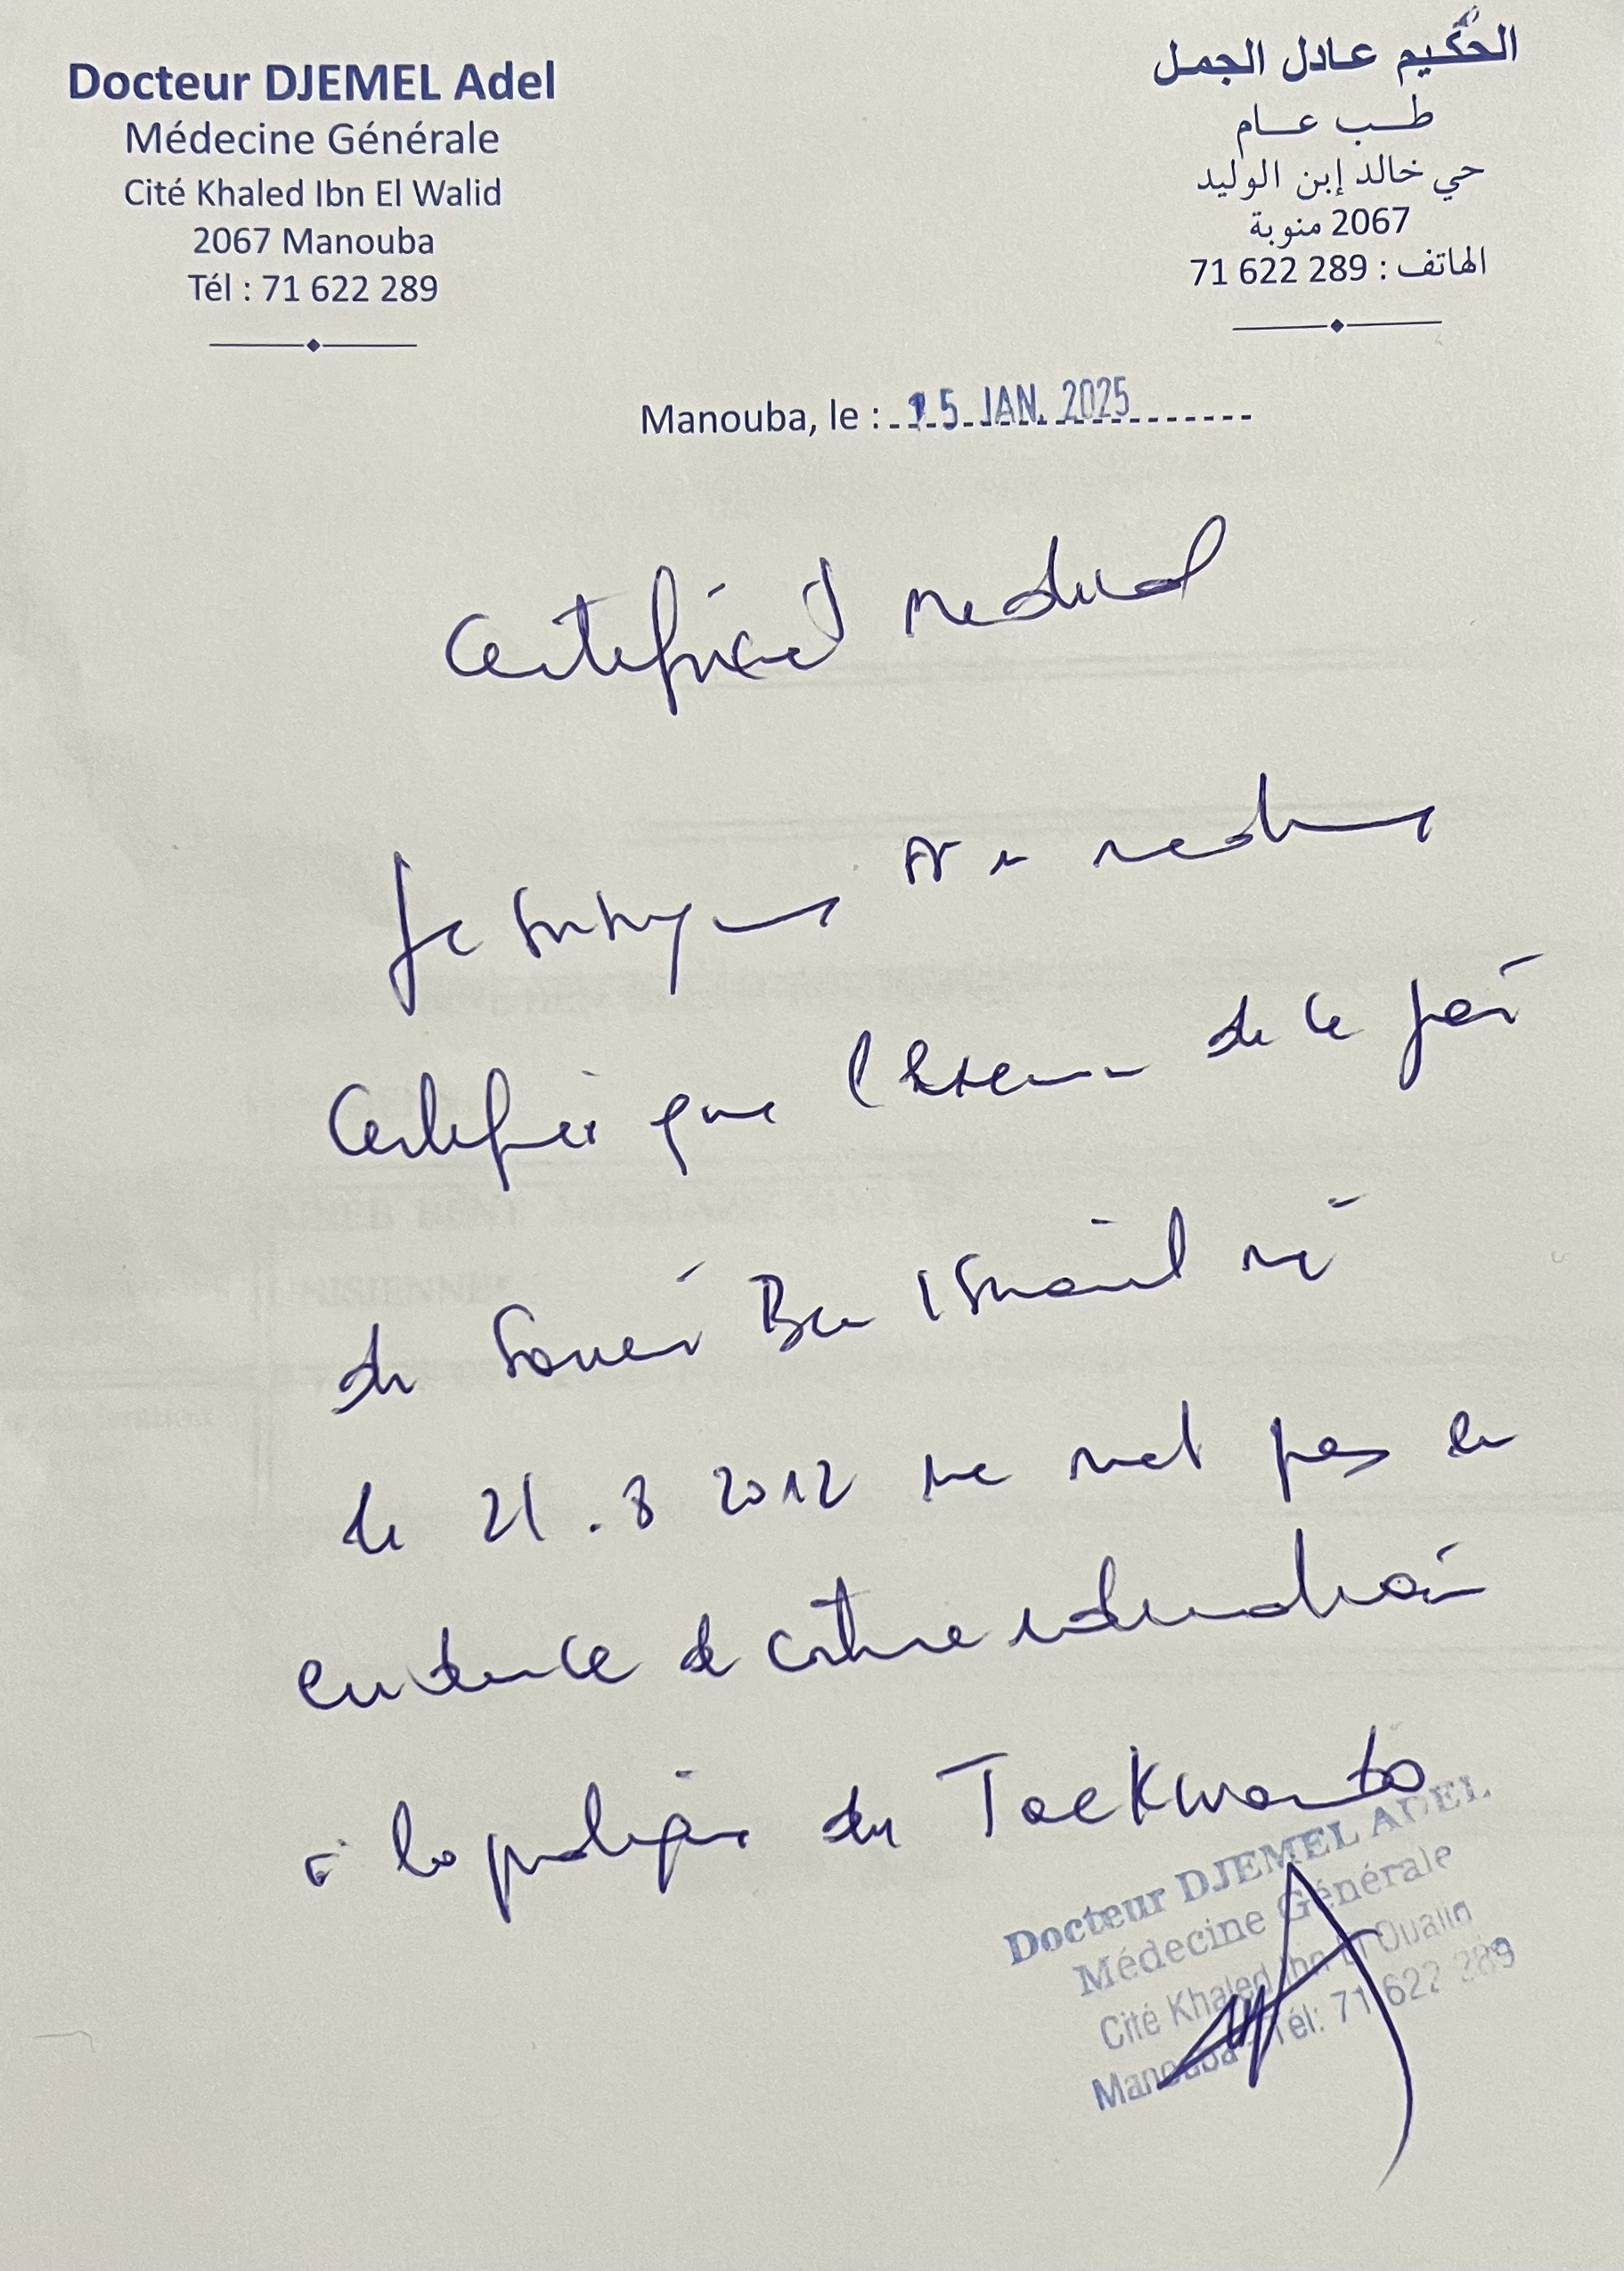 Docteur DJEMEL Adel
Médecine Générale
Cité Khaled Ibn El Walid
2067 Manouba
Tél : 71 622 289
الحكيم عادل الجمل
طب عام
حي خالد إبن الوليد
2067 منوبة
الهاتف : 71 622 289
Manouba, le : 15 JAN. 2025
Certificat medical
Je soussigné medecin
Certifie que l'examen de ce jour
de Ben Ismail né
le 21.8 2012 ne met pas en
evidence de contre indication
à la pratique du Taekwondo
Docteur DJEMEL ADEL
Médecine Générale
Cité Khaled Ibn El Oualid
Manouba - Tél: 71 622 289